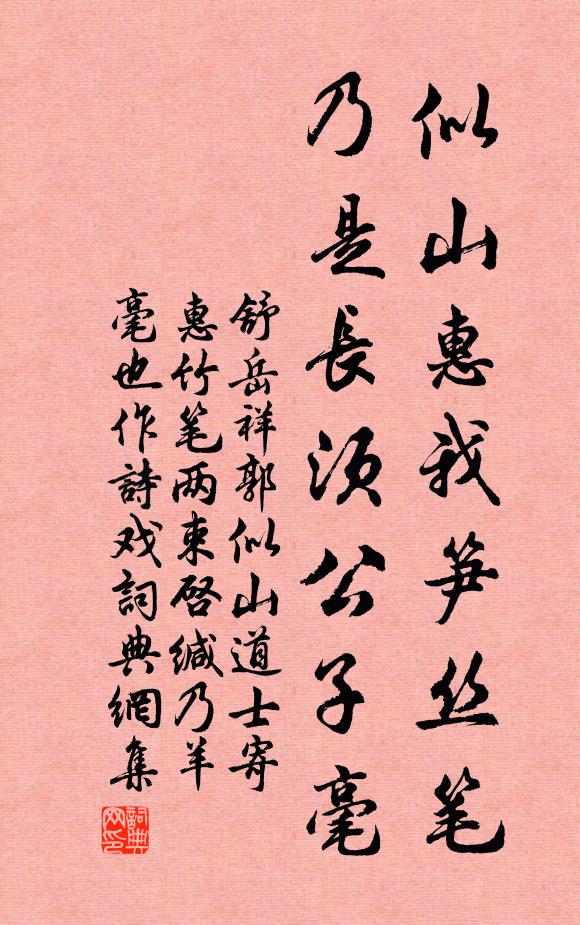 似山惠我笋丝笔
乃是長须公子毫
舒岳祥郭似山道士寄
惠竹笔两束啓缄乃羊
毫也作詩戏詞典網集
詞典网印